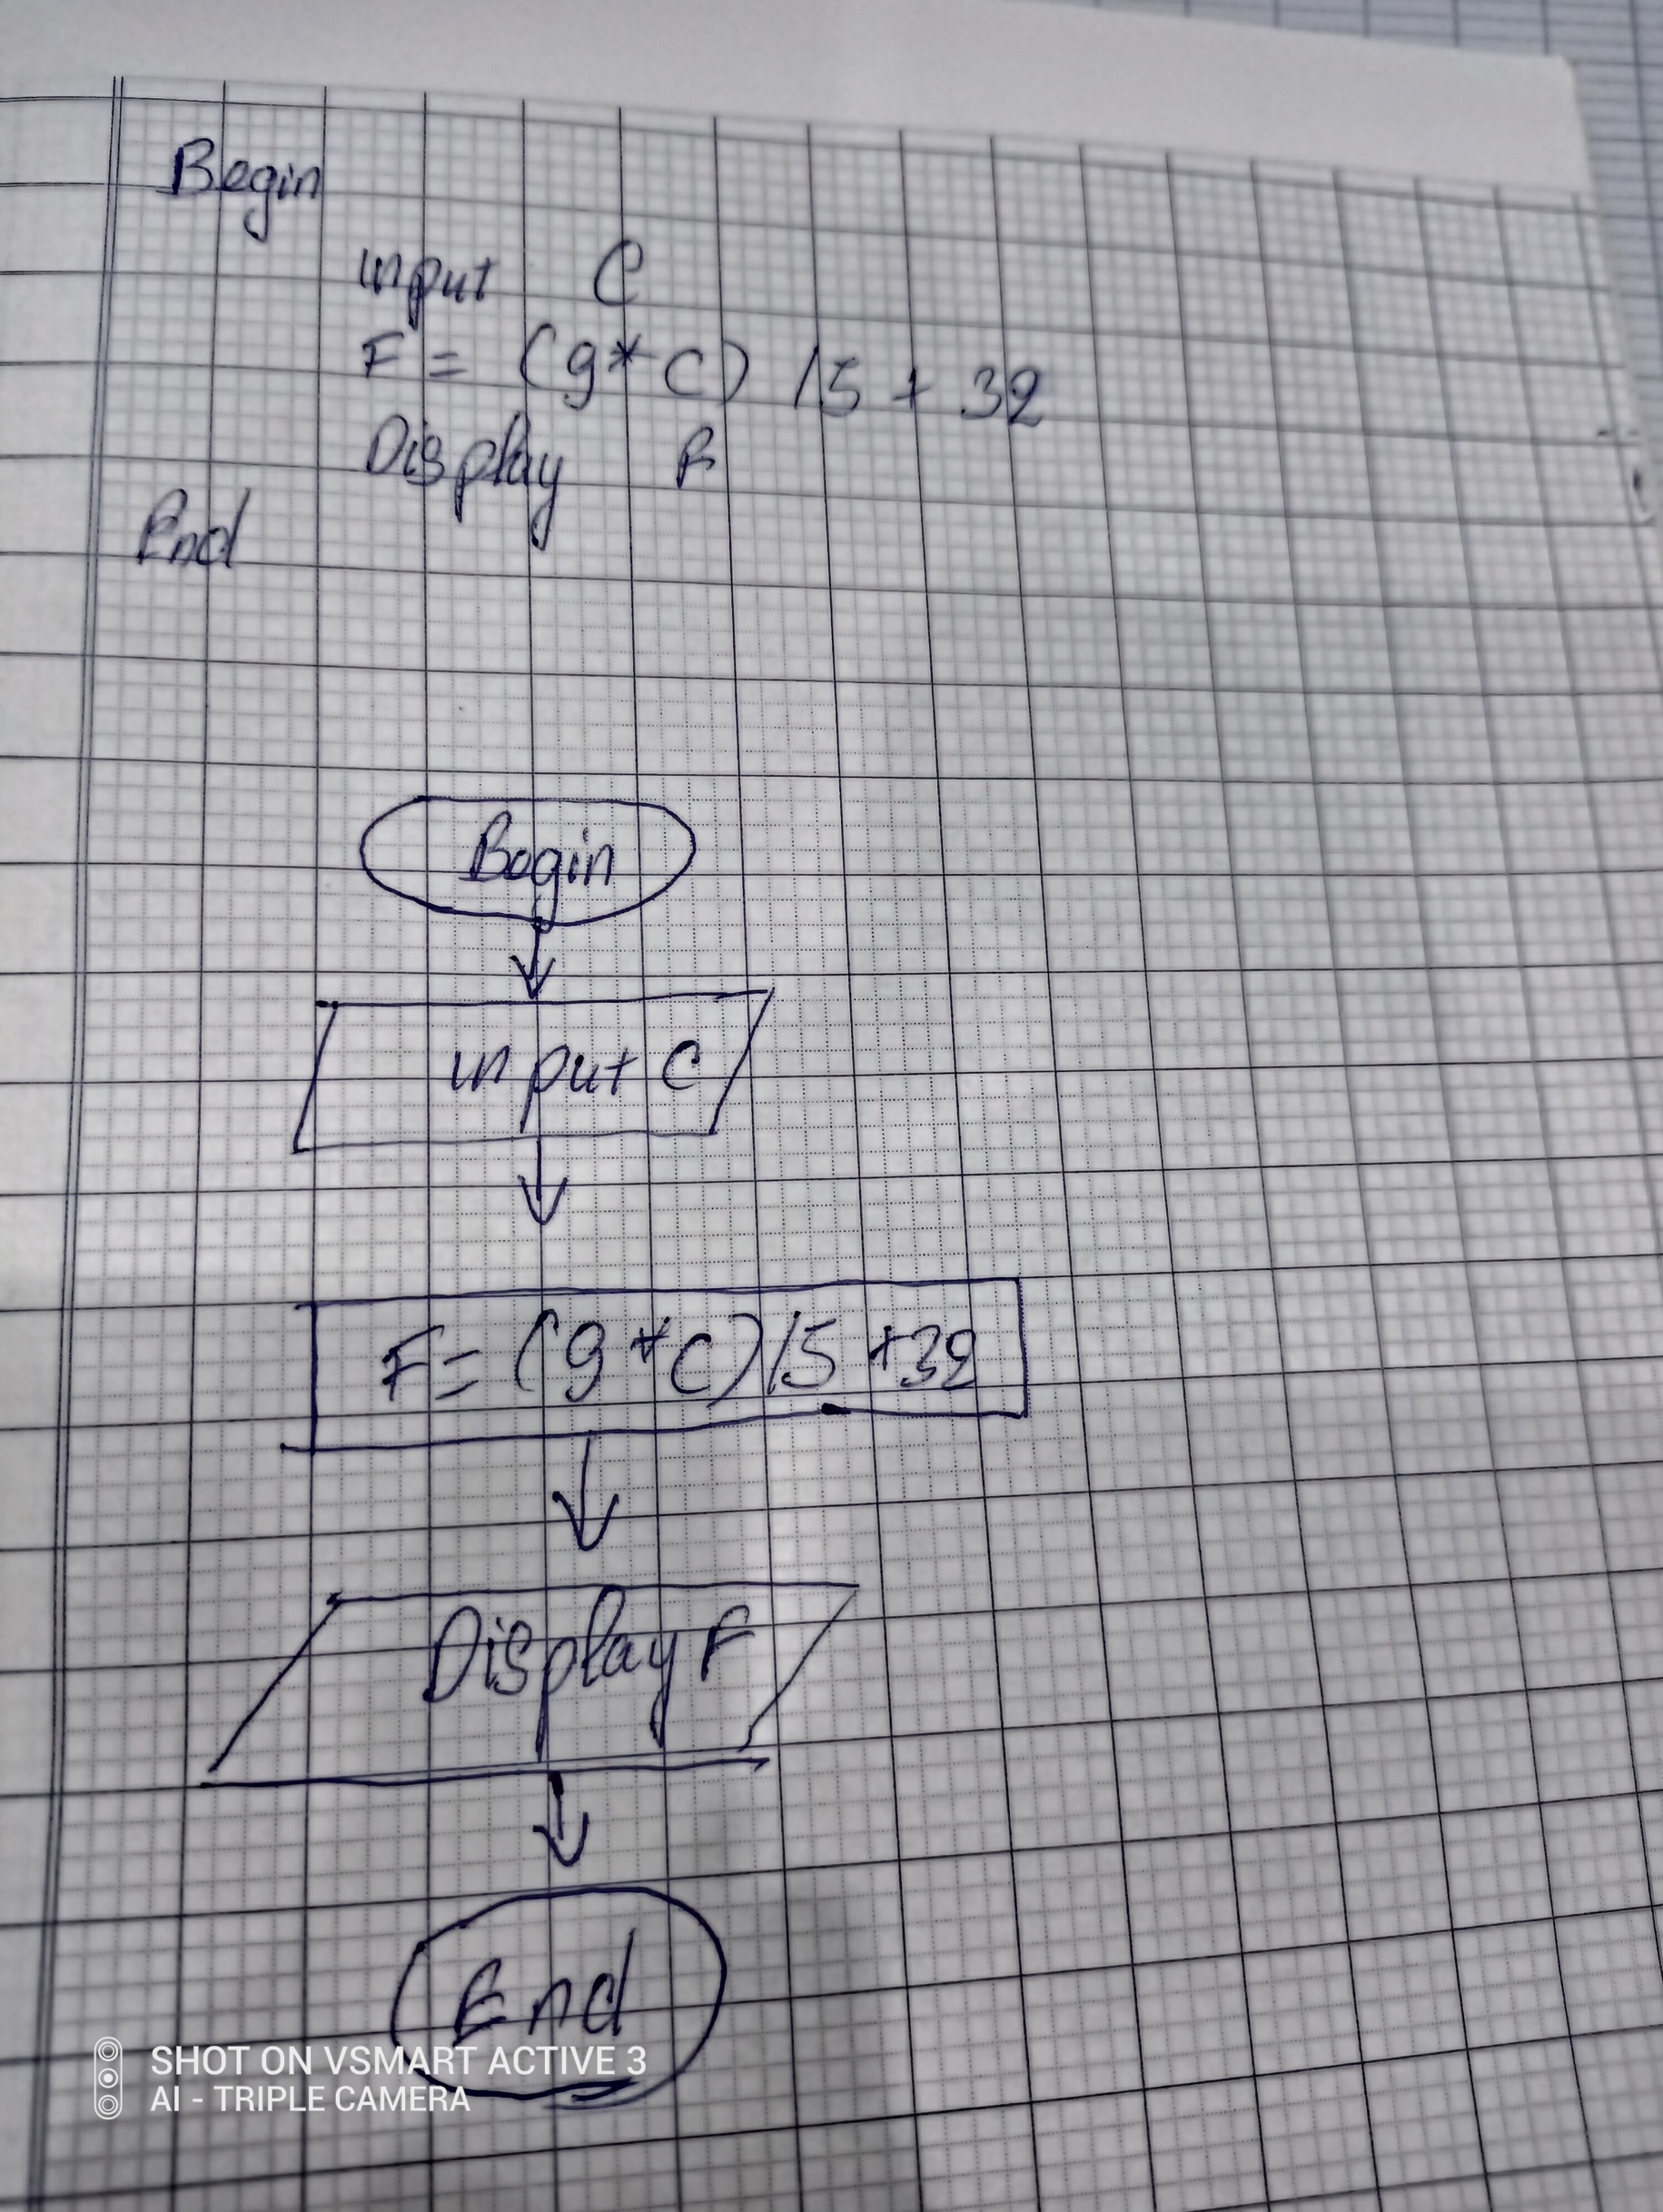 Begin
input C
F = (9 * C) / 5 + 32
Display F
End
Begin
input C
F = (9 * C) / 5 + 32
Display F
End
SHOT ON VSMART ACTIVE 3
AI - TRIPLE CAMERA